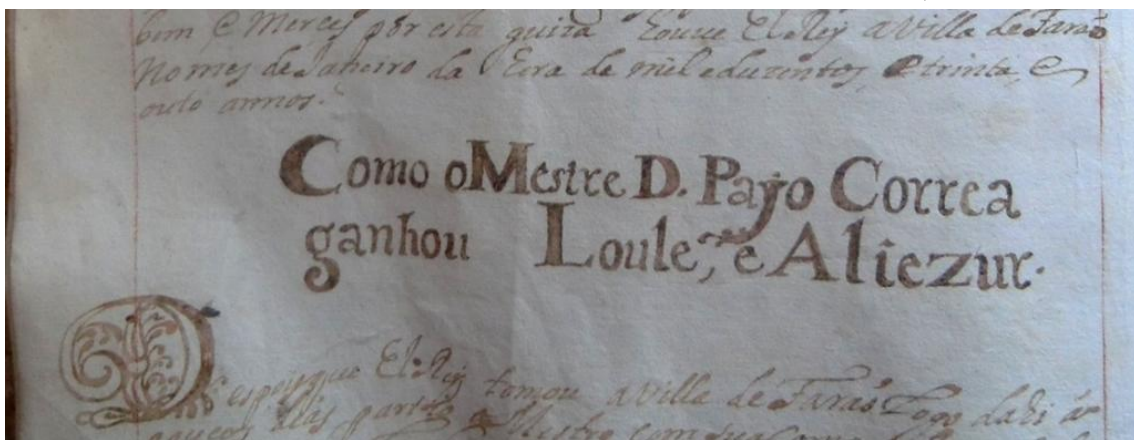 bem e Merces por esta guiza houue El Rey a Villa de Farão
No mes de Janeiro da Eera de mil e duzentos e trinta e
outo annos.
Como o Mestre D. Payo Correa
ganhou Loule, e Aliezur.
Despois que El Rey tomou a Villa de Farão Logo dahi a
poucos dias